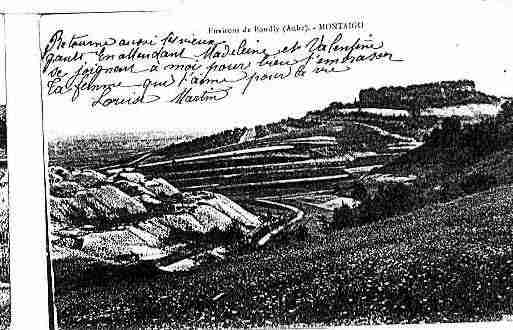 Environs de Bouilly (Aube). - MONTAIGU
Retourne aussi les vieux
gants En attendant Madeleine et Valentine
se joignent à moi pour bien t'embrasser
La femme qui t'aime pour la vie
Louise Martin